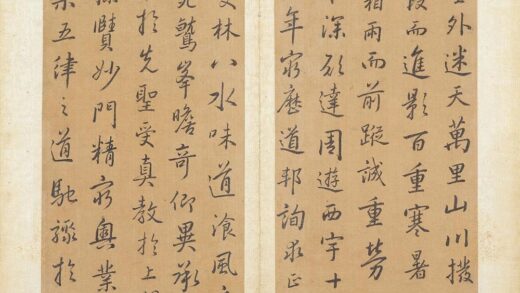 外迷天萬里山川撥
而進影百重寒暑
霜雨而前蹤誠重勞
深願達周遊西宇十
年窮歷道邦詢求正
林八水味道飡風
鷲峯瞻奇仰異承
於先聖受真教於上
賾妙門精窮奧業
乘五律之道馳驟於